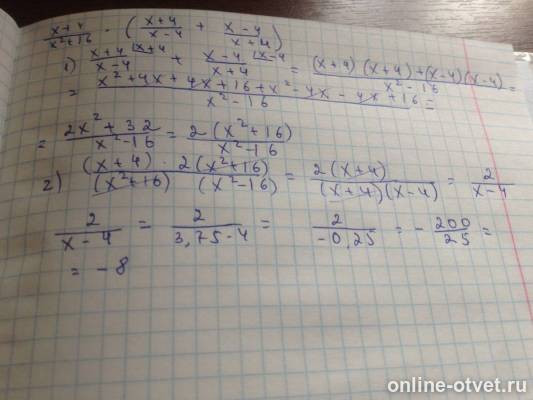 (x+4)/(x²+16) · ( (x+4)/(x-4) + (x-4)/(x+4) )
1) (x+4)/(x-4) |x+4 + (x-4)/(x+4) |x-4 = ((x+4)(x+4)+(x-4)(x-4))/(x²-16) =
= (x²+4x+4x+16+x²-4x-4x+16)/(x²-16) =
= (2x²+32)/(x²-16) = 2(x²+16)/(x²-16)
2) ((x+4)·2(x²+16))/((x²+16)(x²-16)) = 2(x+4)/((x+4)(x-4)) = 2/(x-4)
2/(x-4) = 2/(3,75-4) = 2/(-0,25) = -200/25 =
= -8
online-otvet.ru